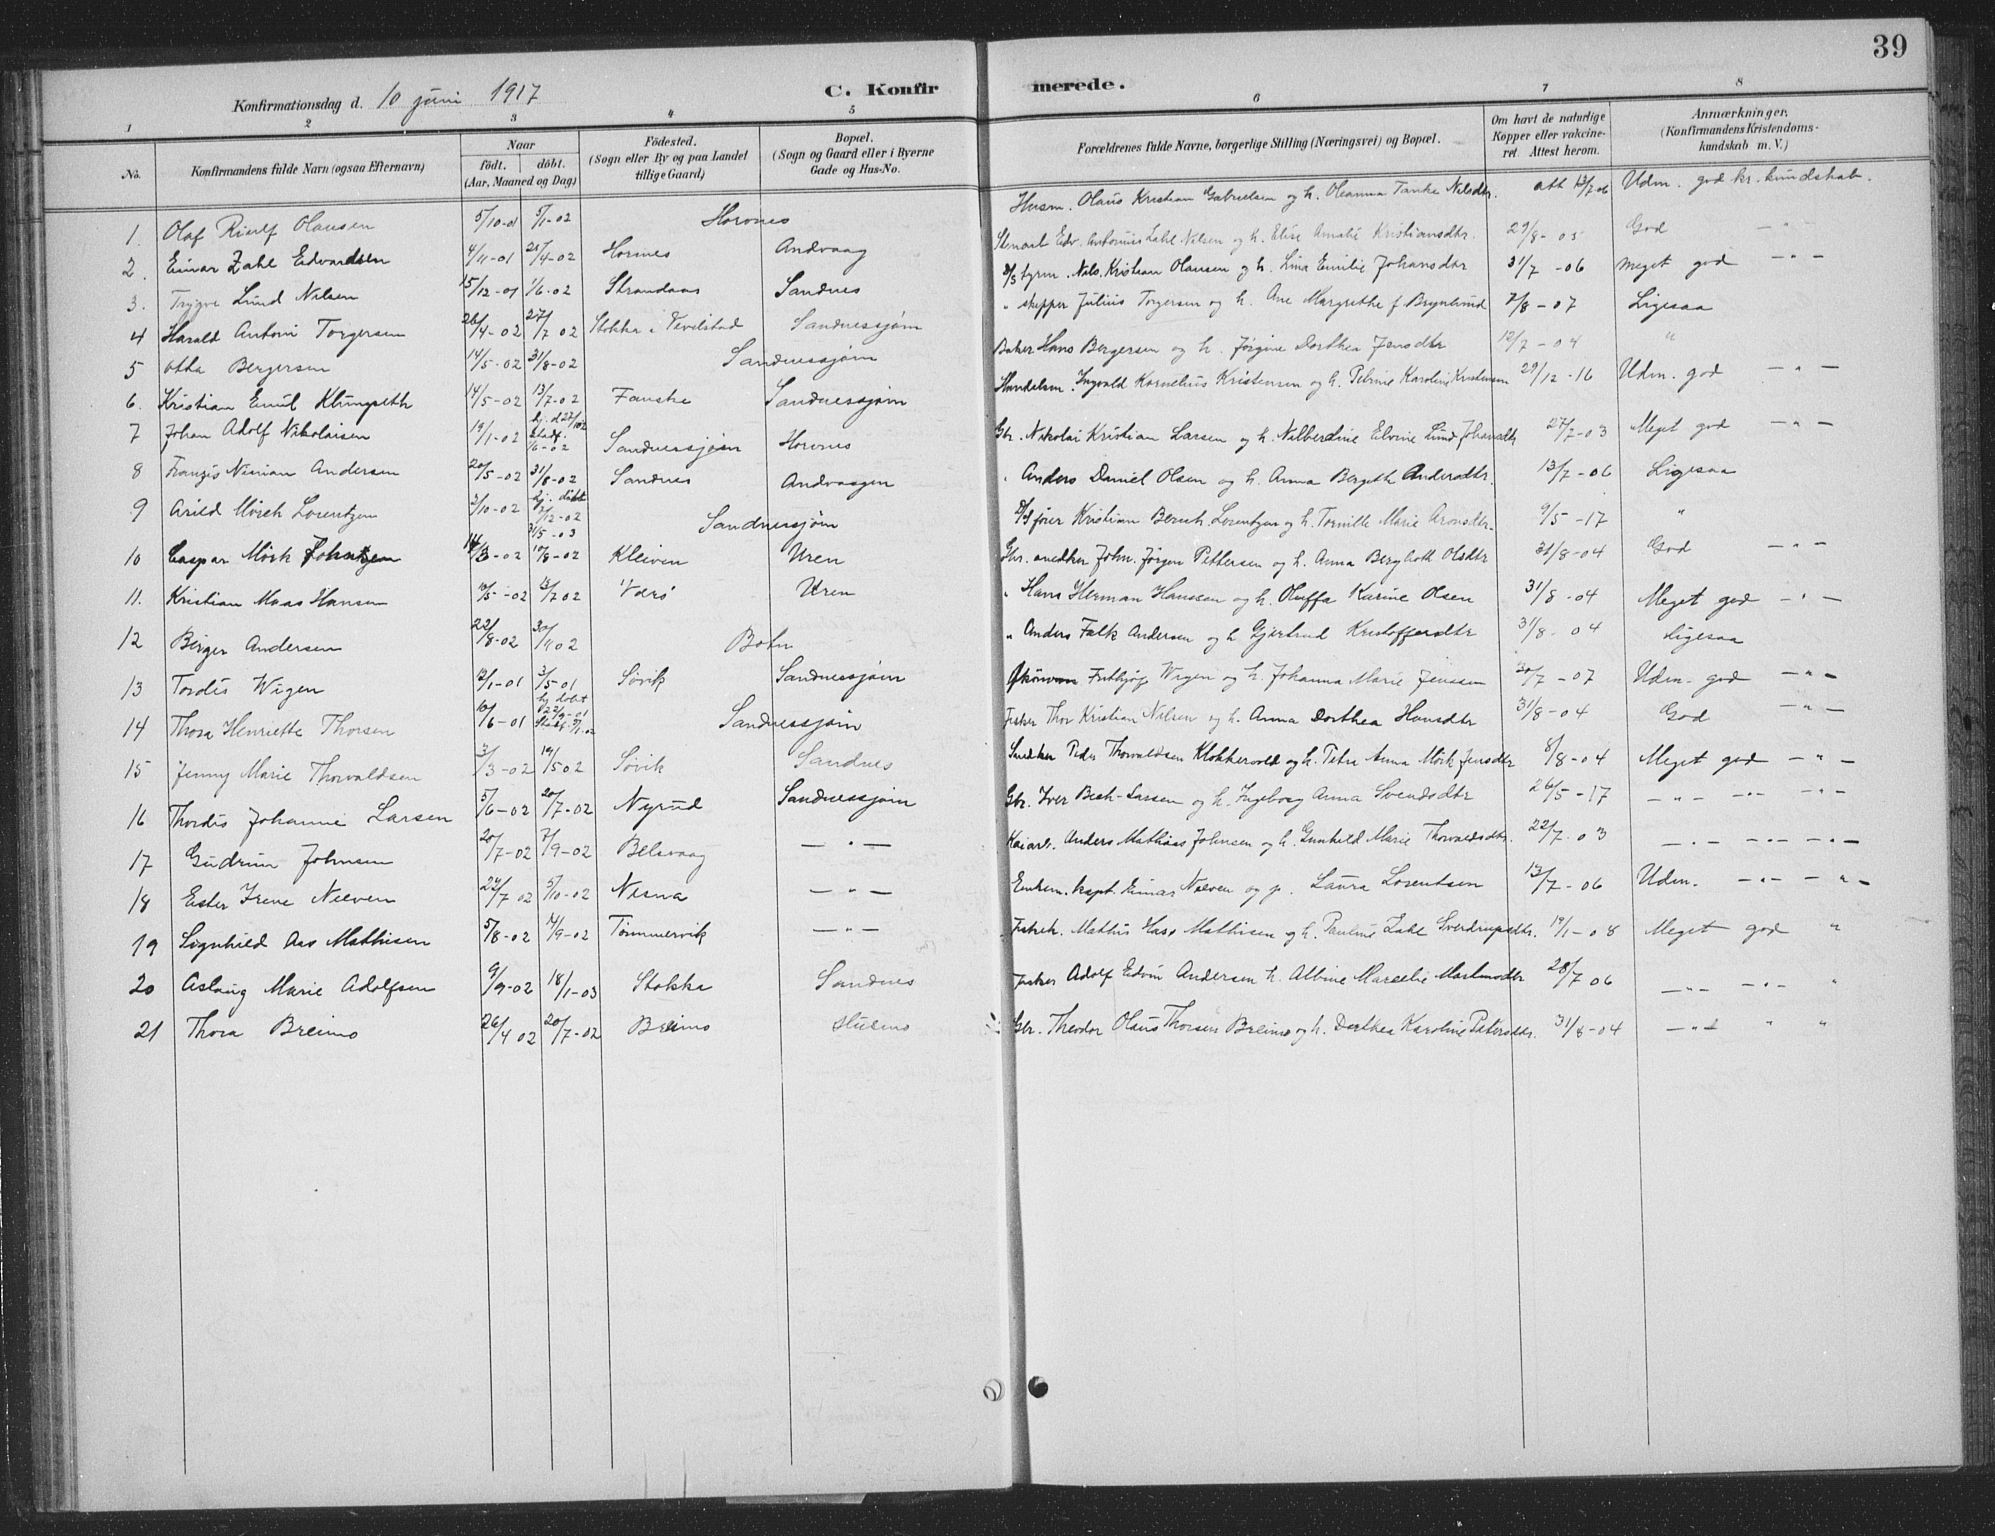 39
Konfirmationsdag d. 10 juni 1917
C. Konfirmerede.
1 2 3 4 5 6 7 8
No.
Konfirmandens fulde Navn (ogsaa Efternavn)
Naar
födt. döbt.
(Aar, Maaned og Dag)
Födested.
(Sogn eller By og paa Landet
tillige Gaard)
Bopæl.
(Sogn og Gaard eller i Byerne
Gade og Hus-No.
Forældrenes fulde Navne, borgerlige Stilling (Næringsvei) og Bopæl.
Om havt de naturlige
Kopper eller vakcine-
ret. Attest herom.
Anmærkninger.
(Konfirmandens Kristendoms-
kundskab m. V.)
1. Olaf Olausen 5/10-01 5/1-02 Horvnes Husm. Olaus Kristian Gabrielsen og h. Oleanna Tanke Nilsdtr. att 13/7 06 Udm. god kr. kundskab.
2. Einar Zahl Edvardsen 4/11-01 21/4-02 Hornes Andvaag Edv. Antonius Zahl Nilsen og h. Elise Amalie Kristiansdtr. 29/8-05 God — " —
3. Trygve Lund Nilsen 15/12-01 1/6-02 Strandaas Sandnes D/S styrm. Nils Kristian Olausen og h. Lina Emilie Johansdtr 31/7-06 Meget god — " —
4 Harald Antoni Torgersen 26/4-02 27/7 02 Stokka i Vevelstad Sandnessjøen " skipper Julius Torgersen og h. Ane Margrethe f. Brynlund 7/8-07 Ligesaa
5 Otto Bergersen 14/5-02 31/8-02 Sandnessjøen Baker Hans Bergersen og h. Jørgine Dorthea Jensdtr 12/7-04 "
6. Kristian Emil Klungseth 14/5-02 13/7-02 Fauske Sandnessjøen Handelsm. Ingvald Kornelius Kristensen og h. Petrine Karoline Kristensen 29/12-16 Udm. god — " —
7 Johan Adolf Nikolaisen 19/1-02 hj. d 27/1 02 stadf. 1/6-02 Sandnessjøen Horvnes Gbr. Nikolai Kristian Larsen og h. Nilberdine Elvine Lind Johansdtr 27/7-03 Meget god — " —
8 Frantzis Ninian Andersen 20/5-02 31/8-02 Sandnes Andvaagen " Anders Daniel Olsen og h. Anna Bergitte Andersdtr. 13/7-06 Ligesaa
9 Arild Mørch Lorentzen 3/10-02 hj. døbt /12-02 31/5-03 Sandnessjøen D/S fører Kristian Bernt Lorentzen og h. Tomille Marie Aronsdtr. 9/5-17 "
10 Caspar Mörk Johntzen 14/3-02 10/8-02 Kleiven Uren Gbr. snedker John Jørgen Pettersen og h. Anna Bergitte Olsdtr 31/8-04 God — " —
11. Kristian Maas Hansen 10/5-02 13/7 02 Værø Uren " Hans Herman Hanssen og h. Oluffa Karine Olsen 31/8-04 Meget god — " —
12 Birger Andersen 22/8-02 Botn " Anders Falk Andersen og h Gjertrud Kristoffersdtr 31/8-04 Ligesaa
13 Tordis Wigen 12/1-01 3/5 01 Søvik Sandnessjøen Fritjof Wigen og h. Johanna Marie Jenssen 30/7-07 Udm. god — " —
14 Thora Henriette Thorsen 10/6-01 hj. døbt 22/9-01 Sandnessjøen Fisker Thor Kristian Nilsen og h. Anna Dorthea Hansdtr 31/8-04 God — " —
15 Jenny Marie Thorvaldsen 3/3-02 19/5 02 Søvik Sandnes Snedker Peder Thorvaldsen Klokkervold og h. Petra Anna Mörk Jensdtr 8/8-04 Meget god — " —
16 Thordis Johanne Larsen 5/6-02 20/7-02 Nyrud Sandnessjøen Gbr. Iver Bech Larsen og h. Ingeborg Anna Svendsdtr 26/5-17 — " — — " — — " —
17 Gudrun Johnsen 20/7-02 7/9-02 Belsvaag — " — Kaiarb. Anders Mathias Johnsen og h. Gunhild Marie Thorvaldsdtr. 22/7-03 — " — — " — — " —
18 Ester Irene Neeven 24/7 02 5/10-02 Nesna — " — kapt. Einar Neeven og p. Laura Lorentsen 13/7-06 Udm. — " — — " —
19 Signhild Aas Mathisen 5/8-02 14/9-02 Tömmervik — " — Mathis Aas Mathisen og h. Pauline Zahl Sverdrupsdtr. 19/1-08 Meget god "
20 Aslaug Marie Adolfsen 9/9-02 18/1-03 Stokka Sandnes Fisker Adolf Edvin Andersen h. Albine Marselie Martinsdtr 28/7 06 — " — — " — "
21 Thora Breimo 26/4 02 20/7-02 Breimo Gbr. Theodor Olaus Thorsen Breimo og h. Dorthea Karoline Petersdtr. 31/8-04 — " — " "